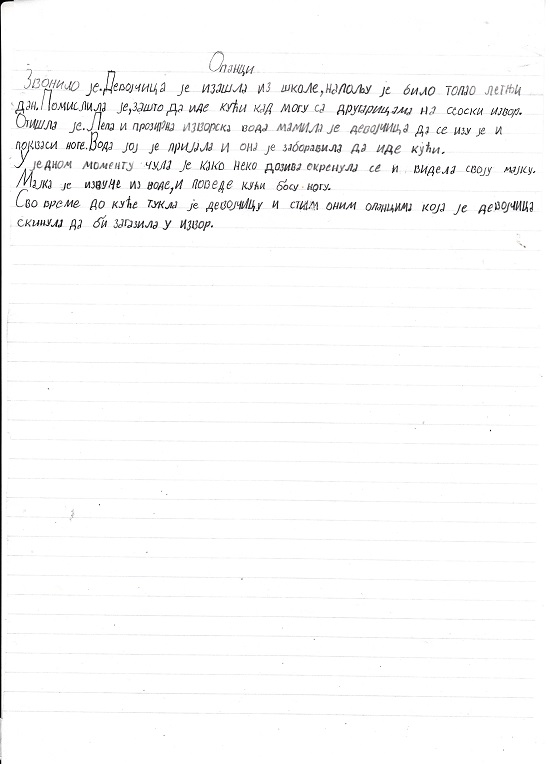 Опанци
Звонило је. Девојчица је изашла из школе, напољу је било топао летњи
дан. Помислила је, зашто да иде кући кад могу са другарицама на сеоски извор.
Отишла је. Лепа и прозирна изворска вода мамила је девојчица да се изује и
поквAси ноге. Вода јој је пријала и она је заборавила да иде кући.
У једном моменту чула је како неко дозива окренула се и видела своју мајку.
Мајка је извуче из воде, и поведе кући босу ногу.
Сво време до куће тукла је девојчицу и оним опанцима која је девојчица
скинула да би загазила у извор.